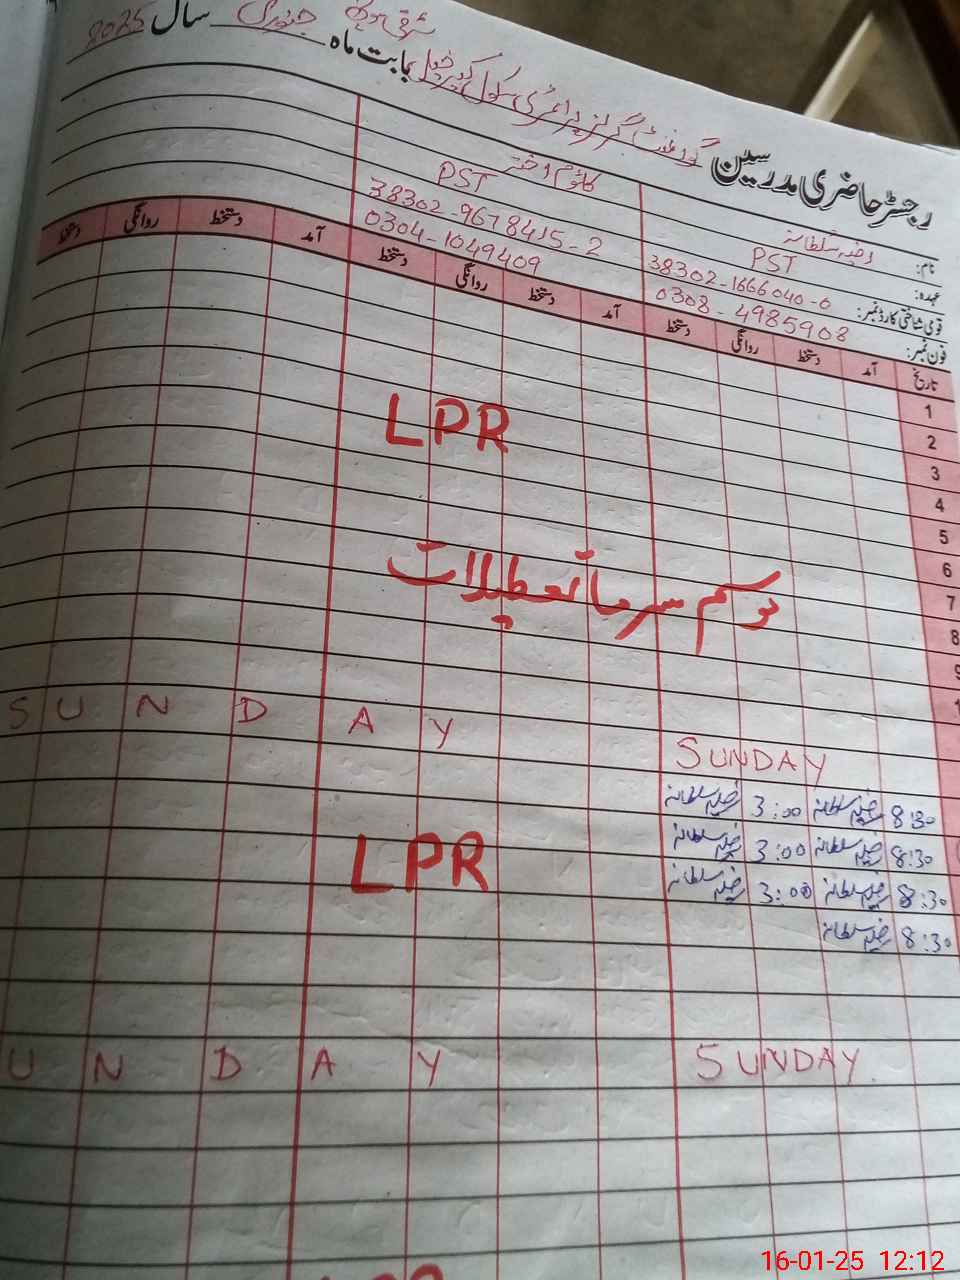 رجسٹر حاضری مدرسین گورنمنٹ گرلز پرائمری سکول بابت ماہ جنوری سال 2025
نام: رضیہ سلطانہ کلثوم اختر
عہدہ: PST PST
قومی شناختی کارڈ نمبر: 38302-1666040-0 38302-9678415-2
فون نمبر: 0308-4985908 0304-1049409
تاریخ آمد دستخط روانگی دستخط آمد دستخط روانگی دستخط آمد دستخط روانگی دستخط
1
2
LPR
3
4
5
6
7
موسم سرما تعطیلات
8
9
1
SUNDAY
SUNDAY
8:30 رضیہ سلطانہ 3:00 رضیہ سلطانہ
8:30 رضیہ سلطانہ 3:00 رضیہ سلطانہ
LPR
8:30 رضیہ سلطانہ 3:00 رضیہ سلطانہ
8:30 رضیہ سلطانہ
SUNDAY
UNDAY
16-01-25 12:12